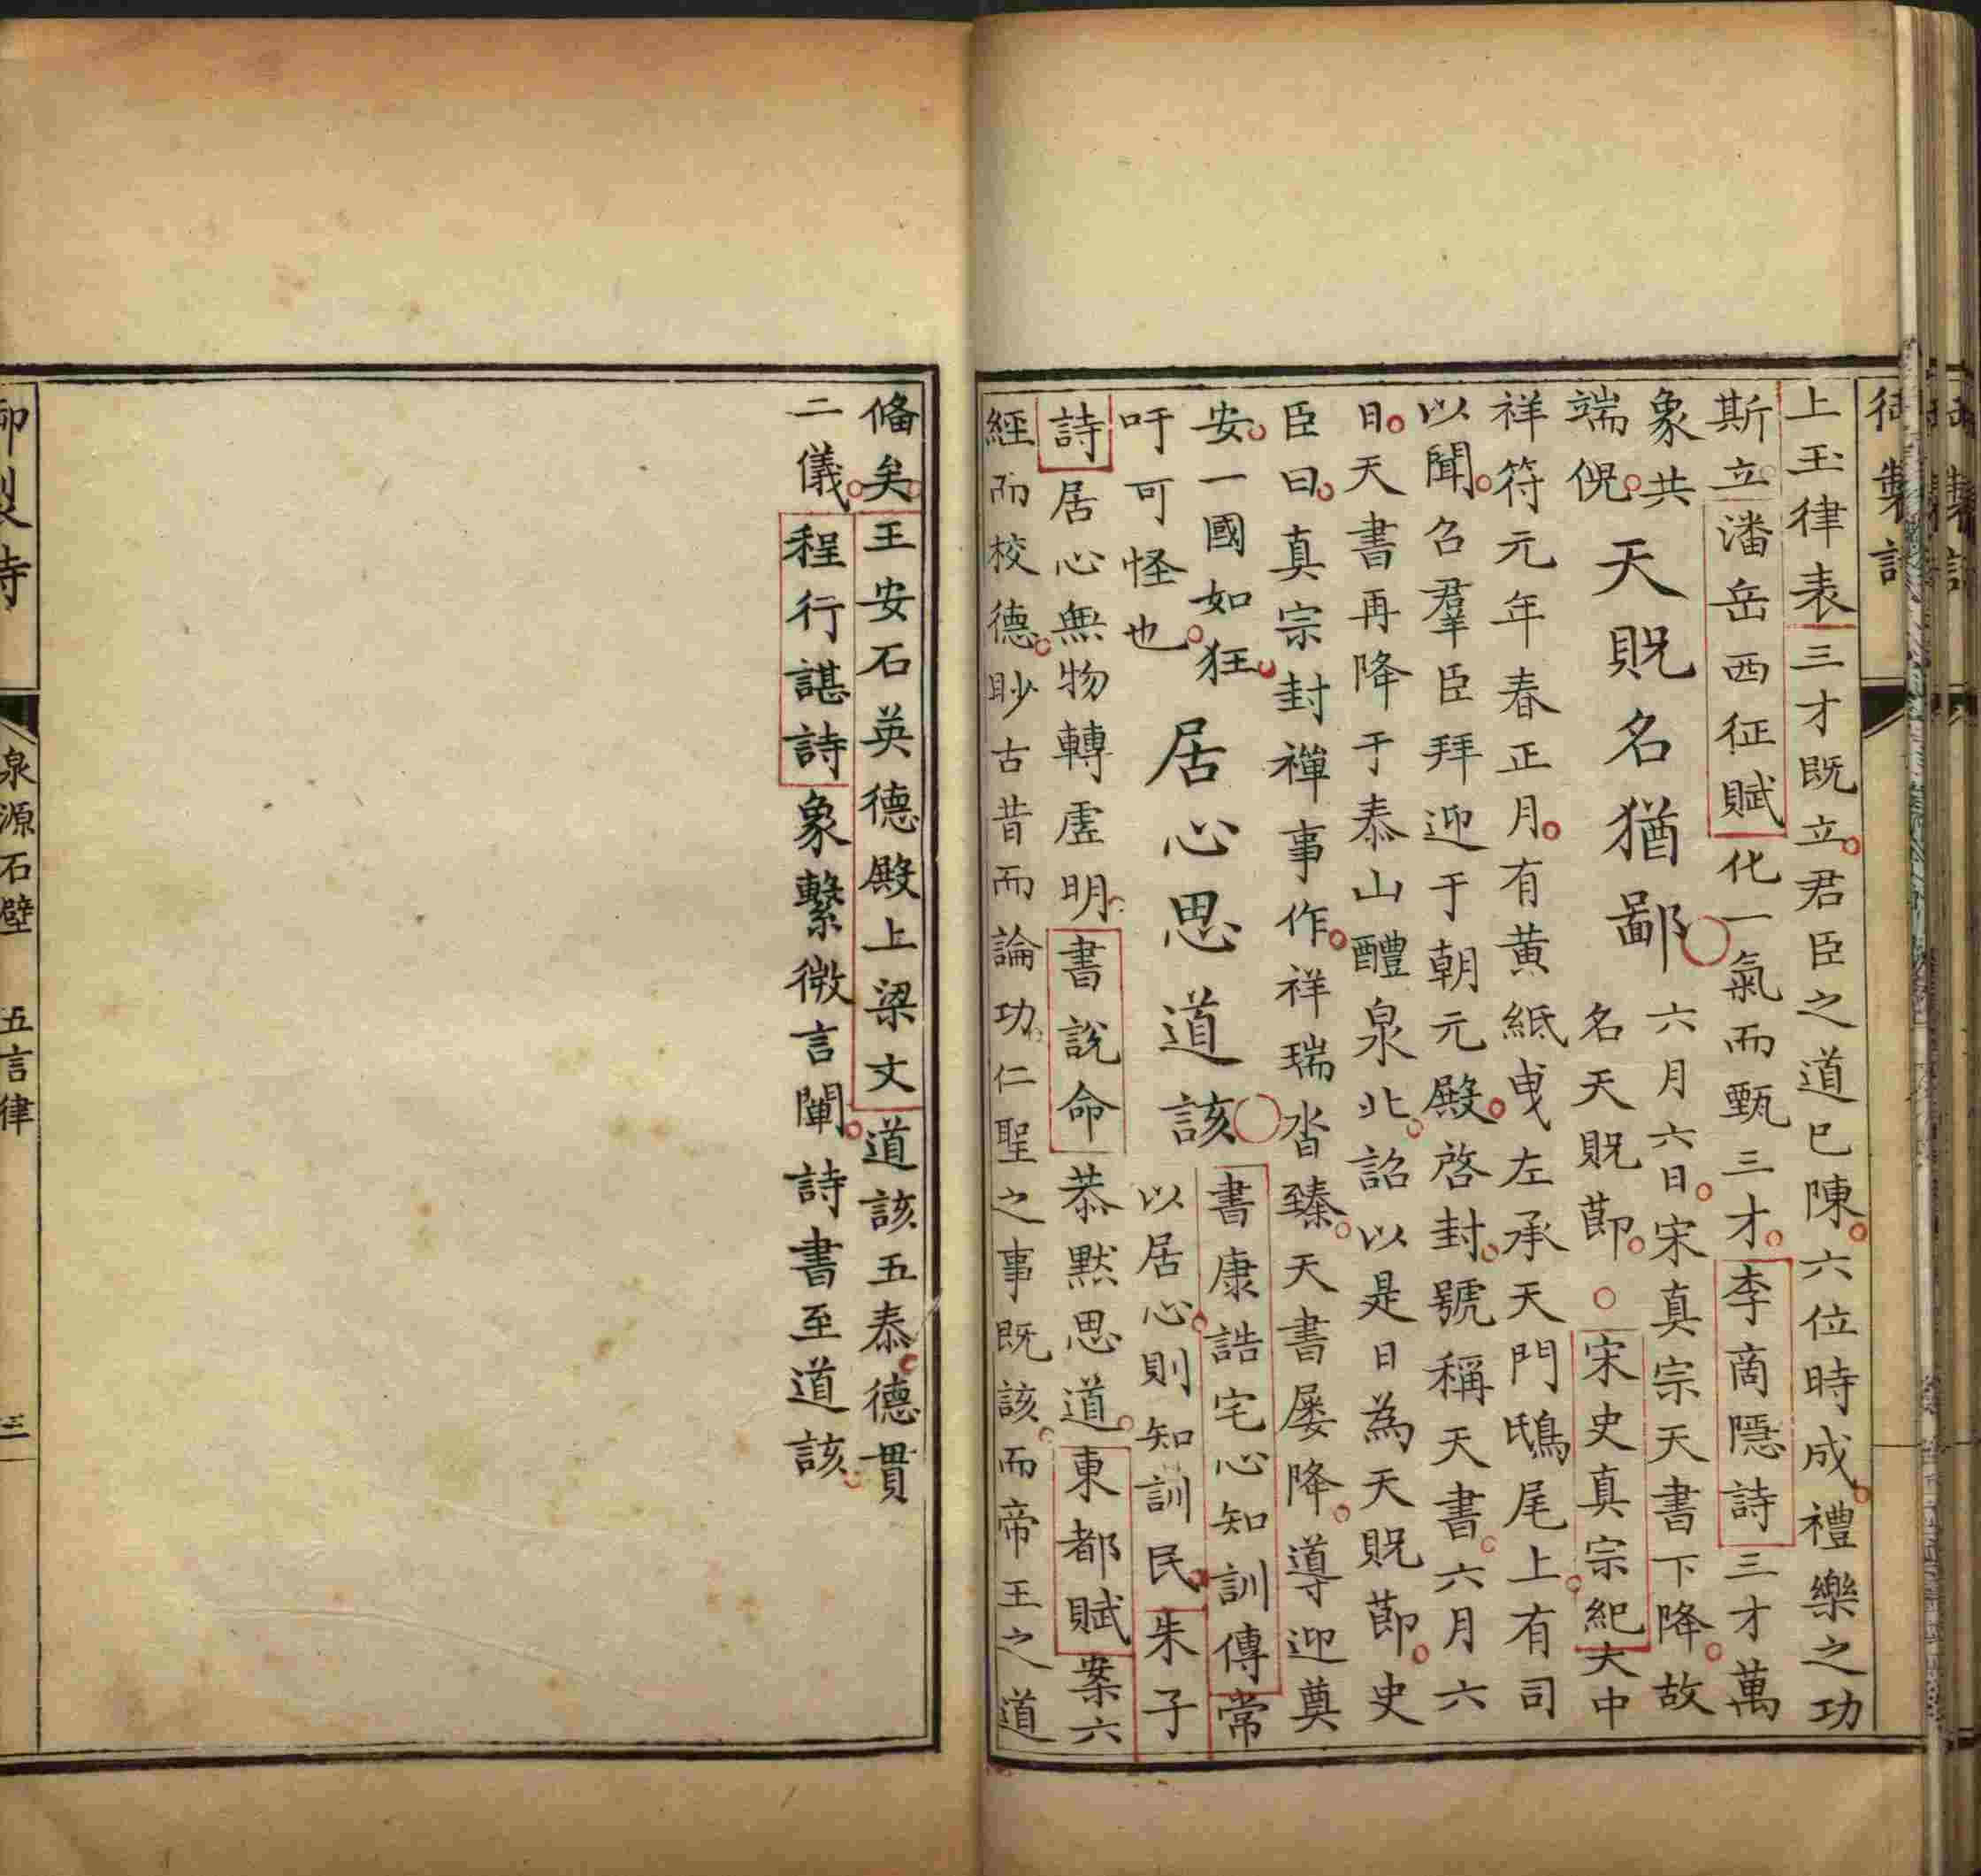 御製詩
上玉律表三才既立君臣之道已陳六位時成禮樂之功
斯立潘岳西征賦化一氣而甄三才李商隱詩三才萬
象共
端倪
天貺名猶鄙
六月六日宋真宗天書下降故
名天貺節○宋史真宗紀大中
祥符元年春正月有黄紙曳左承天門鴟尾上有司
以聞召羣臣拜迎于朝元殿啓封號稱天書六月六
日天書再降于泰山醴泉北詔以是日為天貺節史
臣曰真宗封禪事作祥瑞沓臻天書屢降導迎奠
安一國如狂
吁可怪也
居心思道該
書康誥宅心知訓傳常
以居心則知訓民朱子
詩居心無物轉虛明書說命恭默思道東都賦案六
經而校德眇古昔而論功仁聖之事既該而帝王之道
備矣王安石英德殿上梁文道該五泰德貫
二儀程行諶詩象繫微言闡詩書至道該
御製詩
泉源石壁 五言律
三